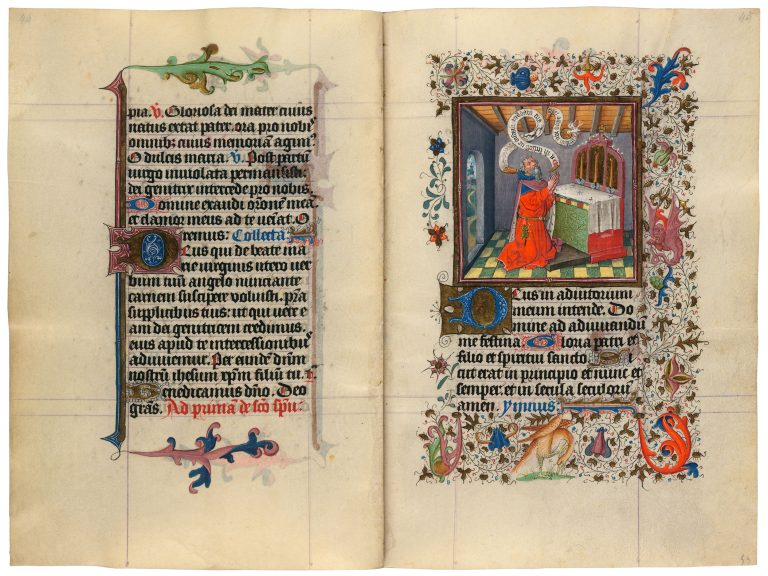 44
pia. V. Gloriosa dei mater cuius
natus extat pater. ora pro nobis
omnibus cuius memoriam agunt
O dulcis maria. V. Post partum
virgo inviolata permansisti:
dei genitrix intercede pro nobis
Domine exaudi orōnem meā.
et clamor meus ad te veīat. O
remus: Collecta:
Deus qui de beate ma
rie virginis utero ver
bum tuū angelo nunciante
carnem suscipere voluisti. prā
supplicibus tuis: ut qui vere e
am dei genitricem credimus.
eius apud te intercessionibus
adiuvemur. Per eundē dūm
nostrū ihesum xpm filiū tu.
Benedicamus dño. Deo
grās. Ad primā de sco spū:
45
Deus in adiutorium
meum intende. Do
mine ad adiuvandū
me festina Gloria patri et
filio et spiritui sancto
sicut erat in principio et nunc et
semper. et in secula seculorū
amen. Ymnus: